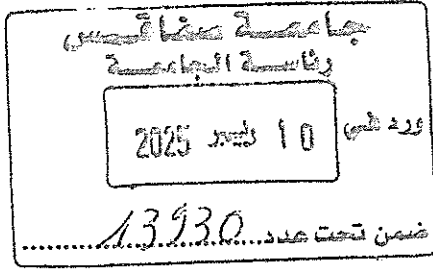 جامعة صفاقس
رئاسة الجامعة
ورد في 10 ديسمبر 2025
ضمن تحت عدد 13930